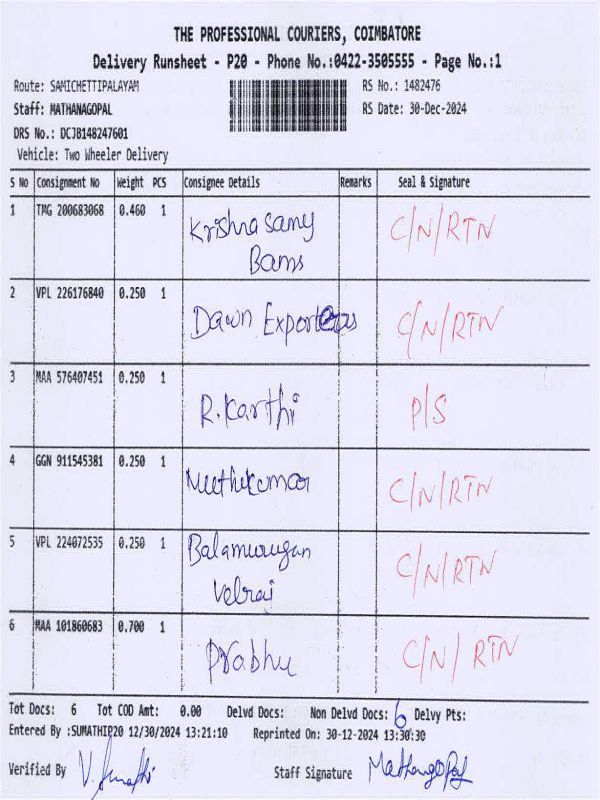 THE PROFESSIONAL COURIERS, COIMBATORE
Delivery Runsheet - P20 - Phone No.:0422-3505555 - Page No.:1
Route: SAMICHETTIPALAYAM RS No.: 1482476
Staff: MATHANAGOPAL RS Date: 30-Dec-2024
DRS No.: DCJB148247601
Vehicle: Two Wheeler Delivery
S No Consignment No Weight PCS Consignee Details Remarks Seal & Signature
1 TMG 200683068 0.460 1 Krishnasamy C/N/RTN
Bams
2 VPL 226176840 0.250 1 Dawn Exporters C/N/RTN
3 MAA 576407451 0.250 1 R.Karthi P/S
4 GGN 911545381 0.250 1 Muthukumar C/N/RTN
5 VPL 224072535 0.250 1 Balamurugan C/N/RTN
Velraj
6 MAA 101860683 0.700 1 Prabhu C/N/RTN
Tot Docs: 6 Tot COD Amt: 0.00 Delvd Docs: Non Delvd Docs: 6 Delvy Pts:
Entered By :SUMATHIP20 12/30/2024 13:21:10 Reprinted On: 30-12-2024 13:30:30
Verified By V. Sumathi Staff Signature